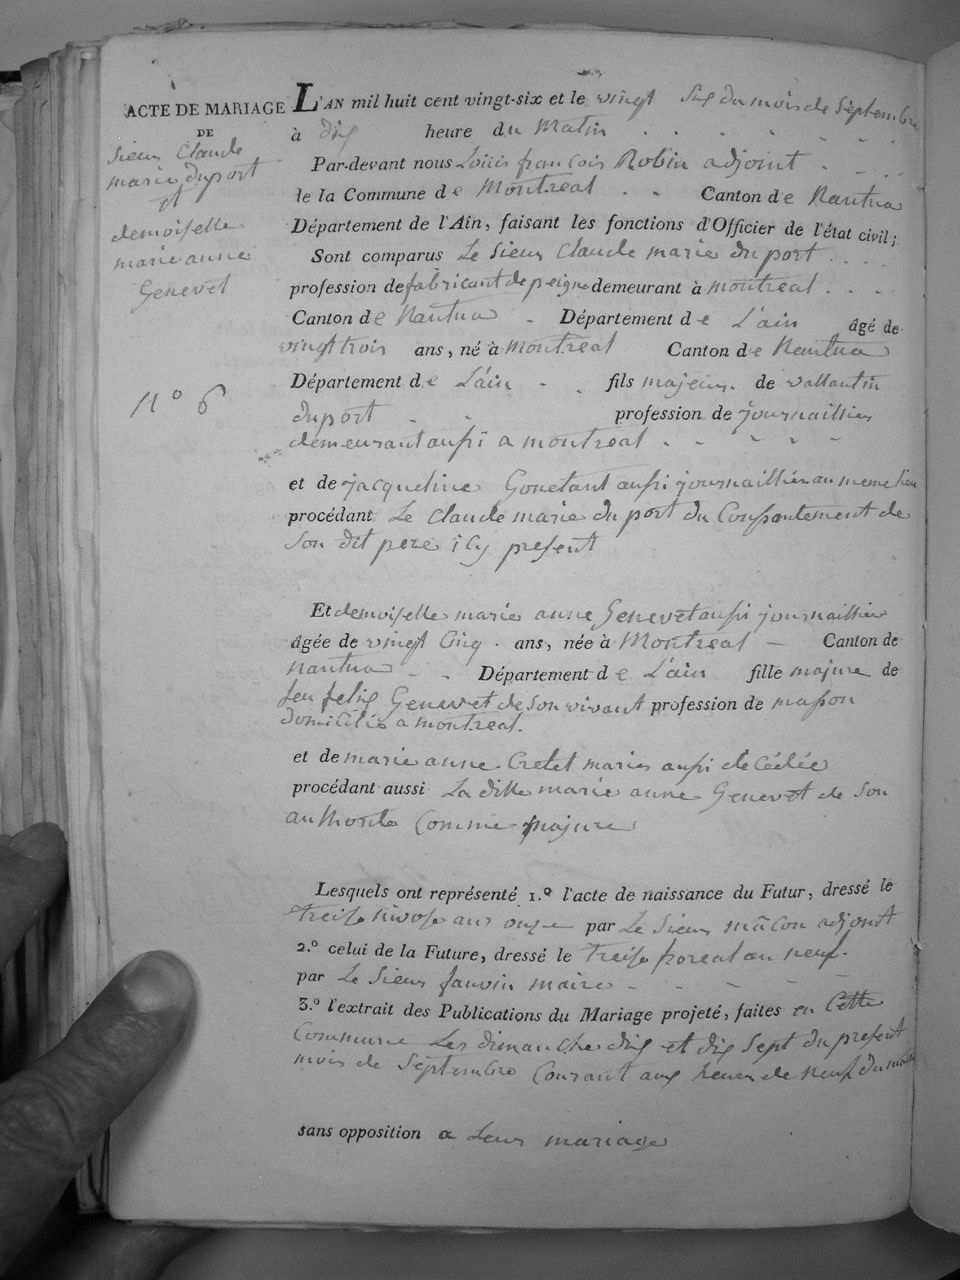 ACTE DE MARIAGE
DE
Sieur Claude
marie duport
et
demoiselle
marie anne
Genevet
N° 6
L'AN mil huit cent vingt-six et le vingt six du mois de Septembre
à dix heure du Matin
Par-devant nous Loüis françois Robin adjoint
de la Commune de Montreal Canton de Nantua
Département de l'Ain, faisant les fonctions d'Officier de l'état civil;
Sont comparus Le Sieur Claude marie duport
profession de fabricant de peigne demeurant à montreal
Canton de Nantua Département de L'ain âgé de
vingt trois ans, né à Montreal Canton de Nantua
Département de L'ain fils majeur de vallantin
duport profession de journaillier
demeurant aussi a montreal
et de jacqueline Gonetant aussi journailliere au meme lieu
procédant Le Claude marie du port du Consentement de
Son dit pere icy present
Et demoiselle marie anne Genevet aussi journaillier
âgée de vingt Cinq ans, née à Montreal Canton de
Nantua Département de L'ain fille majure de
feu felix Genevet de Son vivant profession de masson
domicilié a montreal.
et de marie anne Cretet mariés aussi decédée
procédant aussi La ditte marie anne Genevet de Son
authorité Comme majure
Lesquels ont représenté 1.° l'acte de naissance du Futur, dressé le
treise Nivose ans onze par Le Sieur mâcon adjoint
2.° celui de la Future, dressé le treise floreal an neuf.
par Le Sieur Jauvin maire
3.° l'extrait des Publications du Mariage projeté, faites en Cette
Commune Les dimanche dix et dix Sept du present
mois de Septembre Courant aux heures de Neuf du matin
sans opposition a Leur mariage